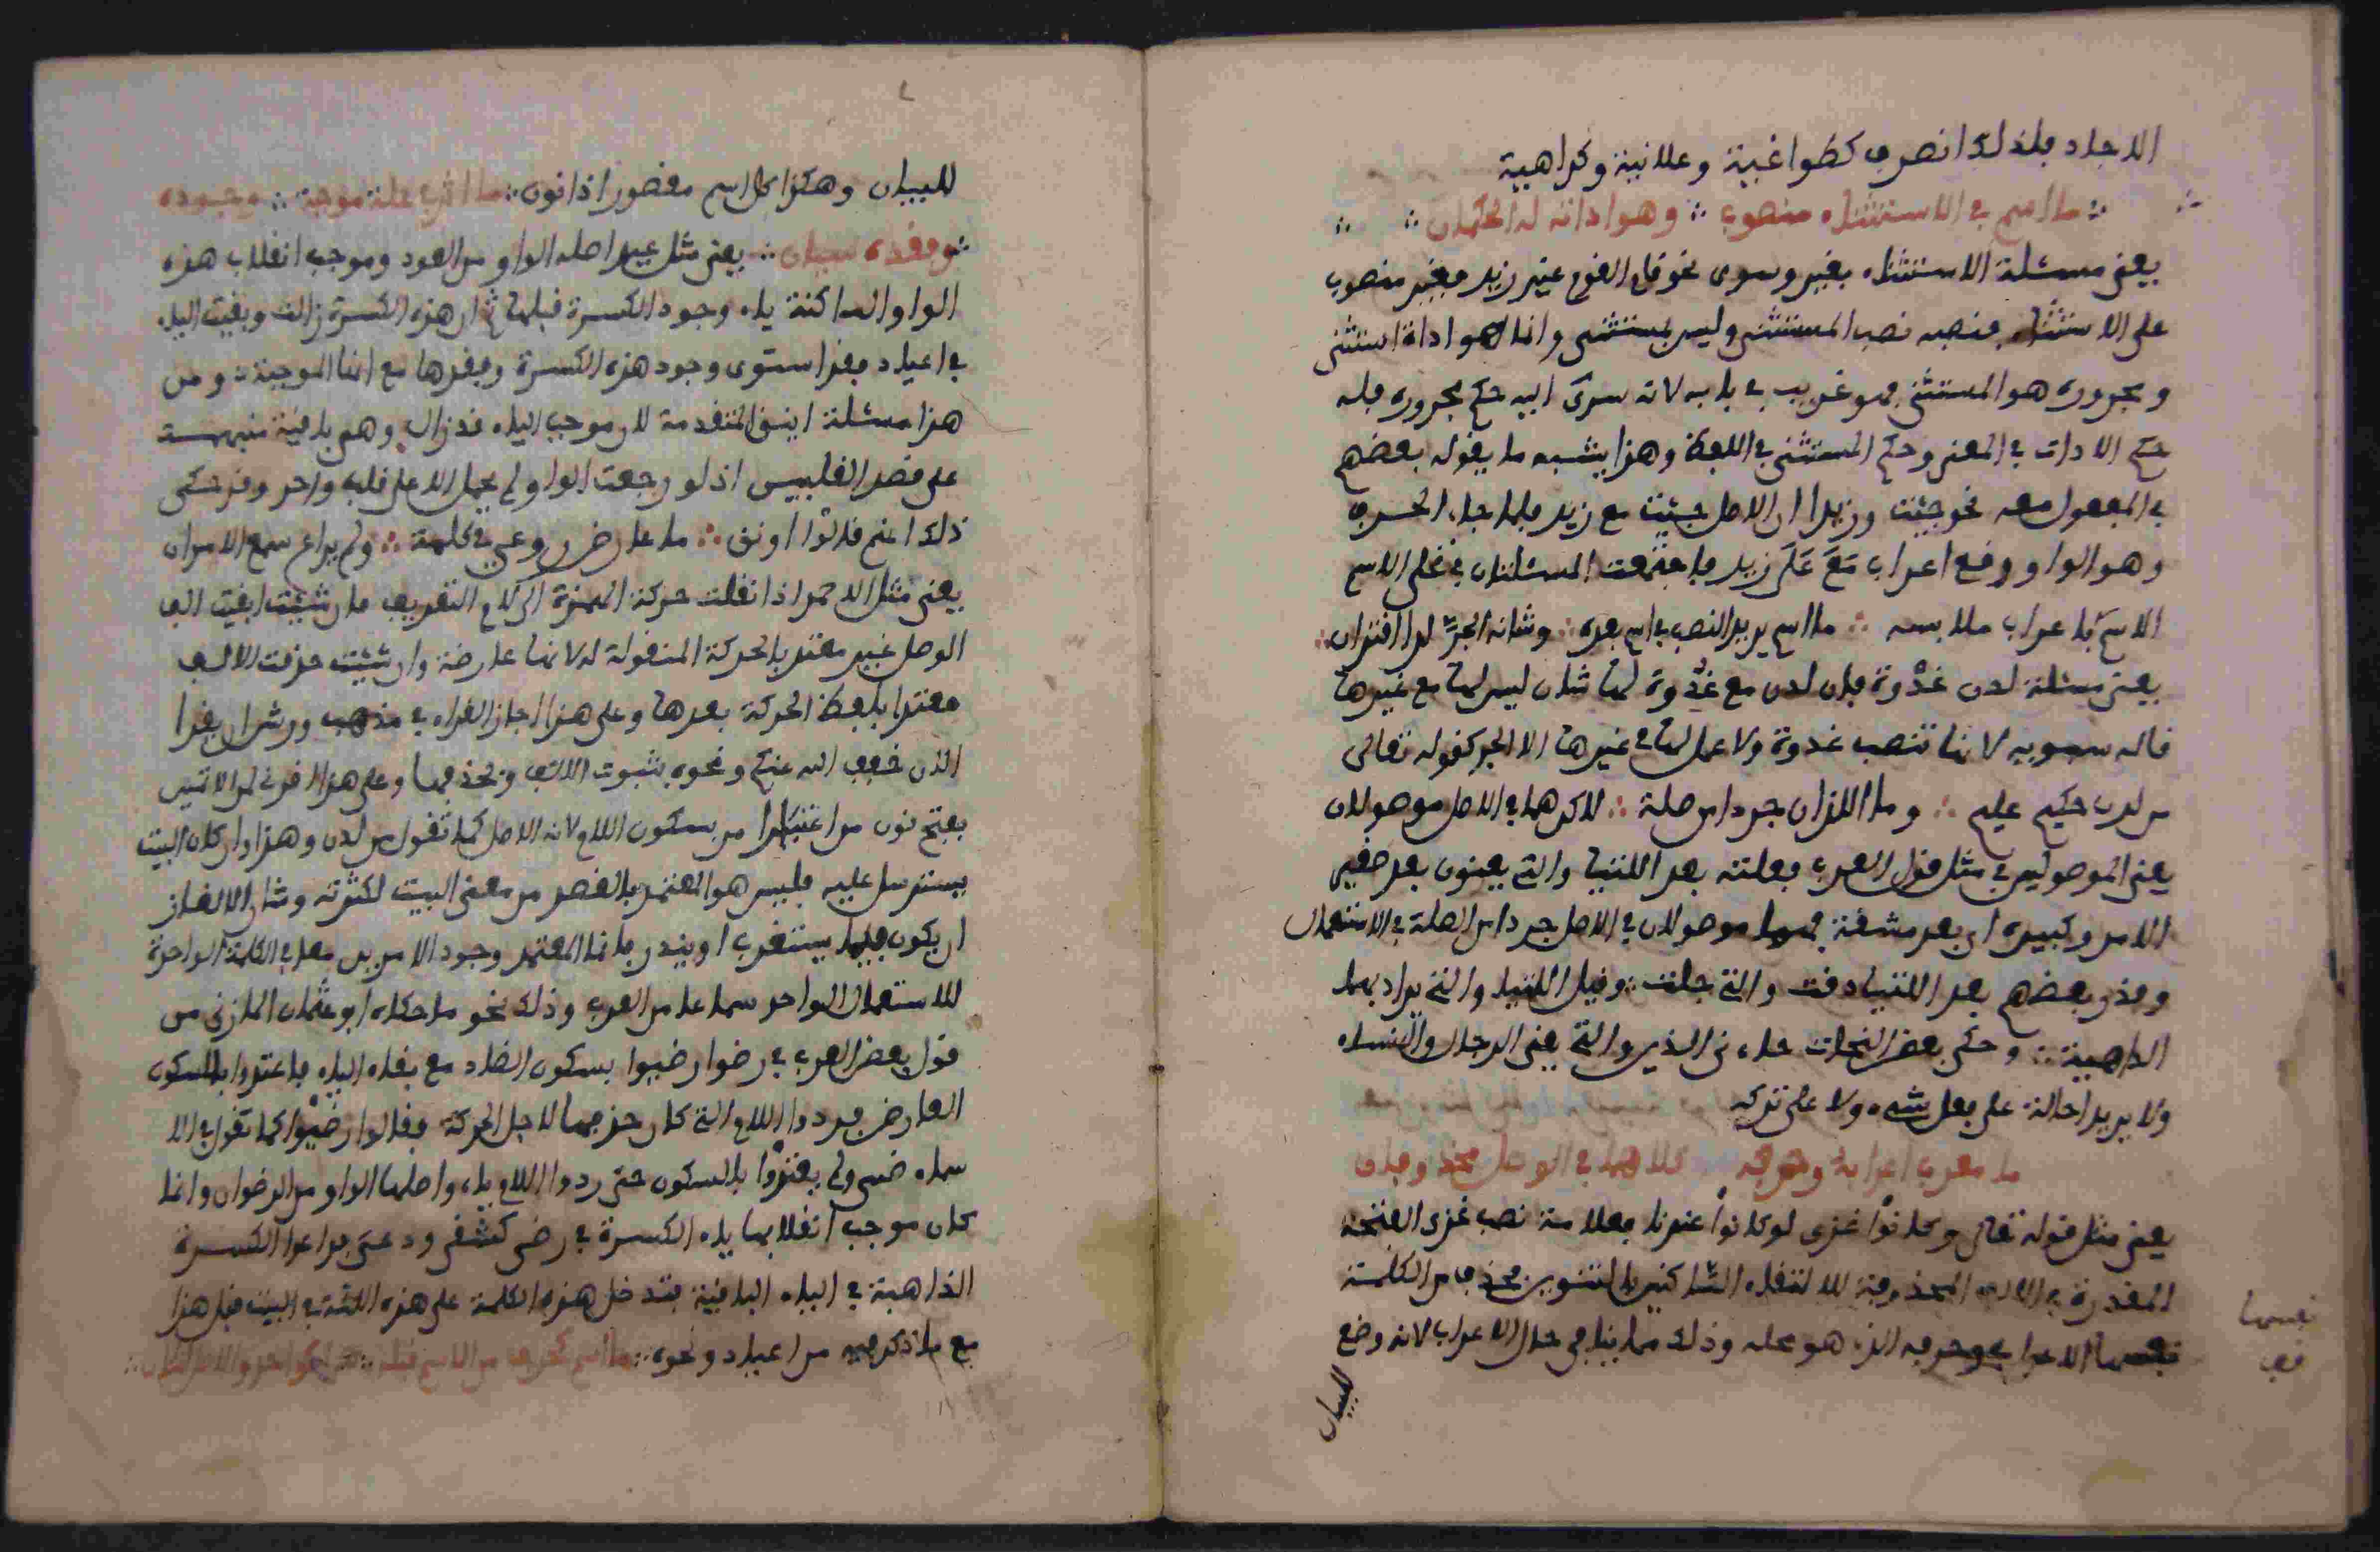 الاحاد فلذلك انصرف كطواغية وعلانية وكراهية
ما اسم في الاستثناء منصوب ∴ وهو اداته له الحكمان ∴
يعني مسئلة الاستثناء بغير وسوى نحو قام القوم غير زيد فغير منصوب
على الاستثناء فنصبه نصب المستثنى وليس بمستثنى وانما هو اداة استثنى
ومجروره هو المستثنى فهو غريب في بابه لانه سرى اليه حكم مجروره فله
حكم الادات في المعنى وحكم المستثنى في اللفظ وهذا يشبه ما يقوله بعضهم
في المفعول معه نحو جئت وزيدا ان الاصل جئت مع زيد فلما جاء الحرف
وهو الواو وقع اعراب مع على زيد فاجتمعت المسئلتان في تخلي الاسم
الاسم باعراب ملابسه ∴ ما اسم يريد النصب في اسم بعده ∴ وشانه الجر لدا اقتران ∴
يعني مسئلة لدن غدوة فان لدن مع غدوة لها شان ليس لها مع غيرها
قاله سيبويه لانها تنصب غدوة ولا عمل لها في غيرها الا الجر كقوله تعالى
من لدن حكيم عليم ∴ وما اللذان جردا من صلة ∴ لاكن هما في الاصل موصولان
يعني الموصولين في مثل قول العرب فعلته بعد اللتيا والتي يعنون بعد صغير
الامر وكبيره اي بعد مشقة فهما موصولان في الاصل جردا من الصلة في الاستعمال
وقدر بعضهم بعد اللتيا دقت والتي جلت ∴ وقيل اللتيا والتي يراد بهما
الداهية ∴ وحكى بعض النحات جاءني الذي والتي يعني الرجال والنساء
ولا يريد احالة على فعل شيء ولا على تركه
ما معرب اعرابه وحرفه كلاهما في الوصل محذوفان
يعني مثل قوله تعالى وكانوا غزى لو كانوا عندنا فعلامة نصب غزى الفتحة
المقدرة في الالف المحذوفة لالتقاء الساكنين بالتنوين فحذف من الكلمة
نفسها الاعراب وحرفه الذي هو محله وذلك مما ينافي حال الاعراب لانه وضع
نفسها
للبيان
للبيان وهكذا كل اسم مقصور اذا نون ∴ ما اثر علة موجبة ∴ وجوده
وفقده سيان ∴ يعني مثل عيد اصله الواو من العود وموجب انقلاب هذه
الواو الساكنة ياء وجود الكسرة قبلها ثم ان هذه الكسرة زالت وبقيت الياء
في اعياد فقد استوى وجود هذه الكسرة وفقدها مع انها الموجبة ∴ ومن
هذا مسئلة اينق المتقدمة لان موجب الياء قد زال وهي باقية منبهة
على قصد القلبين اذ لو رجعت الواو لم يحمل الا على قلب واحد وقد حكى
ذلك اعنى قالوا اونق ∴ ما عارض روعي في كلمة ∴ ولم يراع سمع الامران
يعني مثل الاحمر اذا نقلت حركة الهمزة الى لام التعريف فان شئت ابقيت الف
الوصل غير معتد بالحركة المنقولة له لانها عارضة وان شئت حذفت الالف
معتدا بلفظ الحركة بعدها وعلى هذا اجاز القراء في مذهب ورش ان يقرا
الان خفف الله عنكم ونحوه بثبوت الالف وبحذفها وعلى هذا قرئ لمن الاثمين
بفتح نون من اعتبارا من بسكون اللام لانه الاصل كما تقول من لدن وهذا وان كان البيت
يسترسل عليه فليس هو المعتمد بالقصد من معنى البيت لكثرته وشان الالغاز
ان يكون فيما يستغرب او يندر فانما المعتمد وجود الامرين معا في الكلمة الواحدة
للاستعمال الواحد سماعا من العرب وذلك نحو ما حكاه ابو عثمان المازني من
قول بعض العرب في رضوا رضيوا بسكون الضاد مع بقاء الياء فاعتدوا بالسكون
العارض فردوا اللام التي كان حذفها لاجل الحركة فقالوا رضيوا كما تقول في الا
سماء ضبي ولم يعتدوا بالسكون حتى ردوا اللام ياء واصلها الواو من الرضوان وانما
كان موجب انقلابها ياء الكسرة في رضي كشقي ودعي فراعوا الكسرة
الذاهبة في الياء الباقية فتدخل هذه الكلمة على هذه اللغة في البيت قبل هذا
مع ما ذكر فيه من اعياد ونحوه ∴